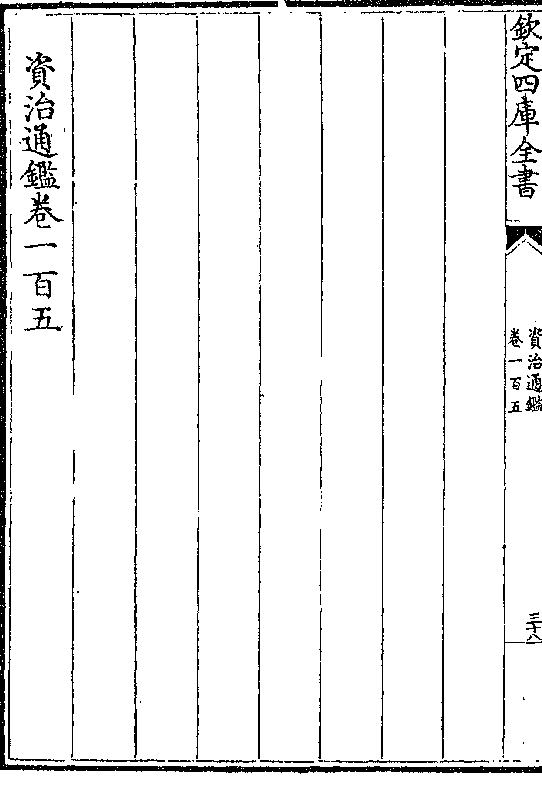 欽定四庫全書
資治通鑑
卷一百五
三十八
資治通鑑卷一百五